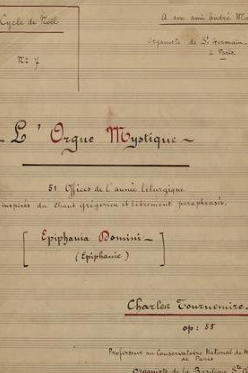 Cycle de Noël
A son ami André Ma
Organiste de St Germain
N: 7
à Paris
L'Orgue Mystique
51 Offices de l'année liturgique
inspirés du chant grégorien et librement paraphrasés.
Epiphania Domini
(Epiphanie)
Charles Tournemire.
op: 55
Professeur au Conservatoire National de M
de Paris
Organiste de la Basilique Ste